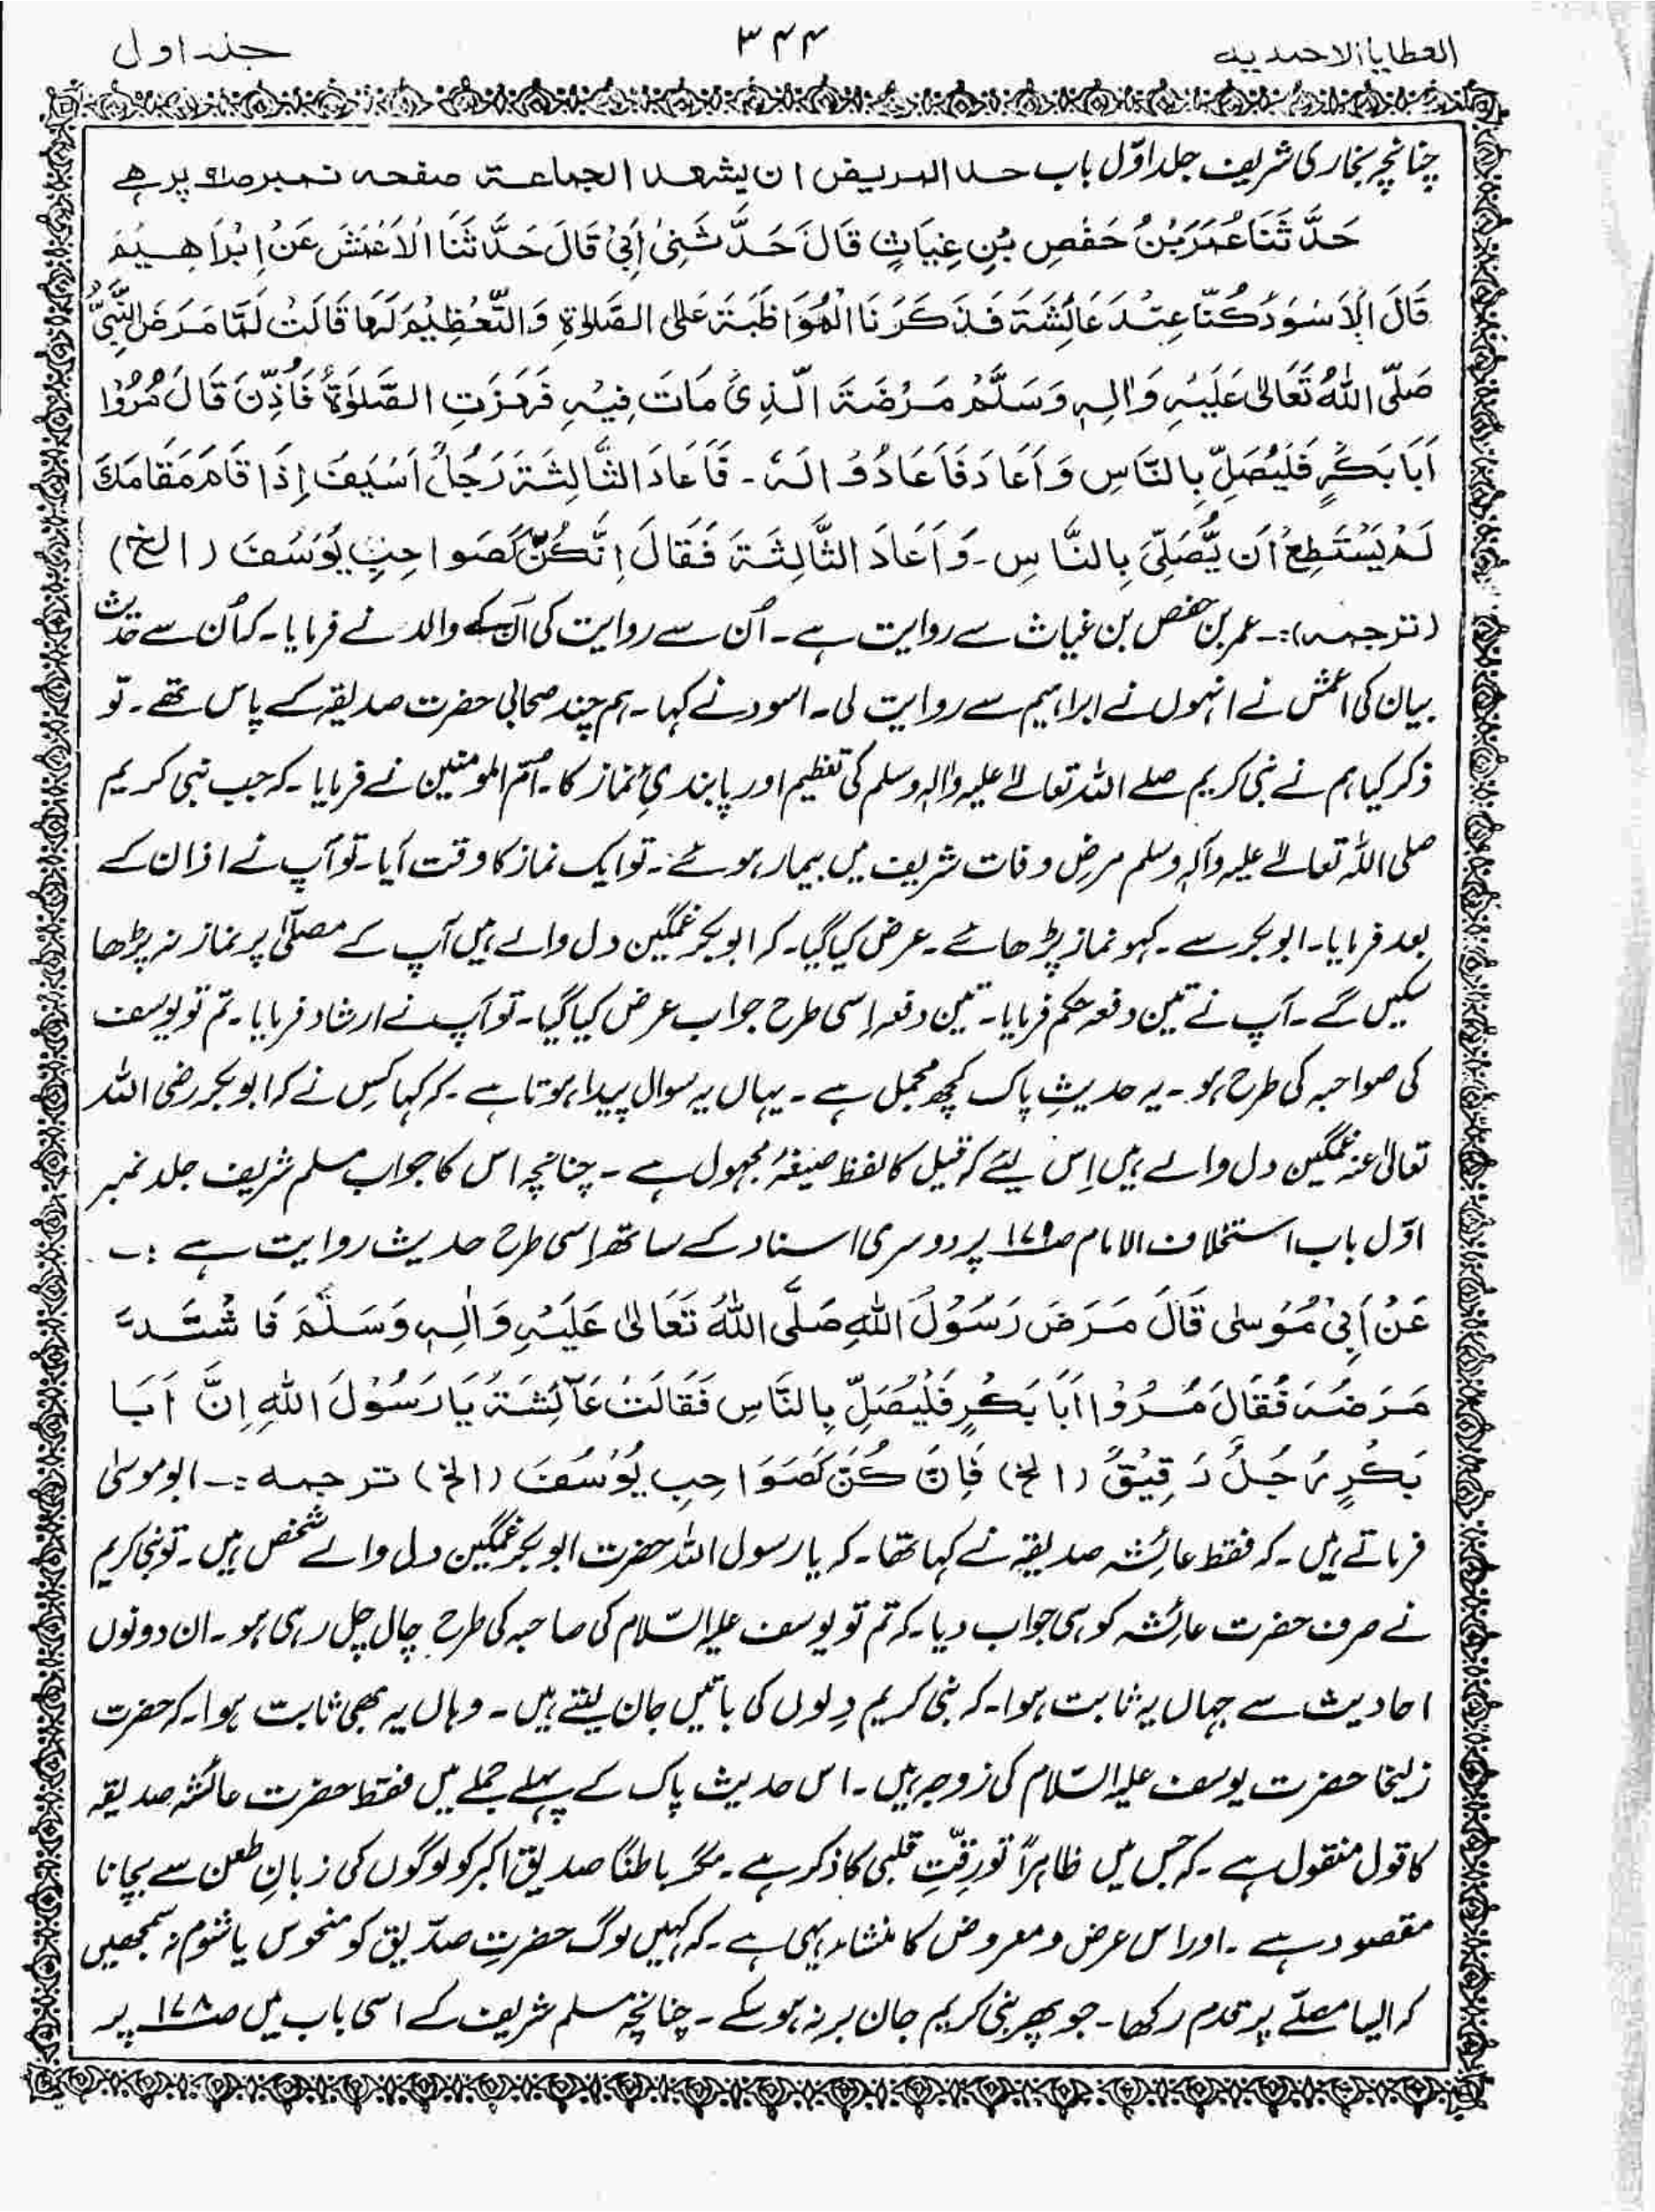 العطایا الاحمدیہ
۳۴۴
جلد اول
چنانچہ بخاری شریف جلد اوّل باب حد المریض ان یشھد الجماعۃ صفحہ نمبر ص۹۱ پر ہے
حَدَّثَنَا عُمَرَ بْنُ حَفْصِ بْنِ غِیَاثٍ قَالَ حَدَّثَنِیْ اَبِیْ قَالَ حَدَّثَنَا الْاَعْمَشَ عَنْ اِبْرَاھِیْمَ
قَالَ الْاَسْوَدُ کُنَّا عِنْدَ عَائِشَۃَ فَذَکَرْنَا الْمُوَاظَبَۃَ عَلَی الصَّلٰوۃِ وَالتَّعْظِیْمَ لَھَا قَالَتْ لَمَّا مَرَضَ النَّبِیُّ
صَلَّی اللہُ تَعَالٰی عَلَیْہِ وَاٰلِہٖ وَسَلَّمْ مَرْضَۃَ الَّذِیْ مَاتَ فِیْہِ فَھَزَتِ الصَّلٰوۃُ فَاُذِّنَ قَالَ مُرُوْا
اَبَا بَکْرٍ فَلْیُصَلِّ بِالنَّاسِ وَاَعَادَ فَاَعَادُوْا لَہٗ ۔ فَاَعَادَ الثَّالِثَۃَ رَجُلٌ اَسِیْفَ اِذَا قَامَ مَقَامَکَ
لَمْ یَسْتَطِعْ اَن یُّصَلِّیَ بِالنَّاسِ ۔ وَاَعَادَ الثَّالِثَۃَ فَقَالَ اِنَّکُنَّ کَصَوَاحِبِ یُوْسُفَ (الخ)
(ترجمہ):۔ عمر بن حفص بن غیاث سے روایت ہے ۔ اُن سے روایت کی اُن کے والد نے فرمایا ۔ کہ اُن سے حدیث
بیان کی اعمش نے انہوں نے ابراہیم سے روایت لی ۔ اسود نے کہا ۔ ہم چند صحابی حضرت صدیقہ کے پاس تھے ۔ تو
ذکر کیا ہم نے نبی کریم صلے اللہ تعالےٰ علیہ واٰلہ وسلم کی تعظیم اور پابندیٔ نماز کا ۔ اُمّ المومنین نے فرمایا ۔ کہ جب نبی کریم
صلی اللہ تعالےٰ علیہ وآلہ وسلم مرضِ وفات شریف میں بیمار ہوئے ۔ تو ایک نماز کا وقت آیا ۔ تو آپ نے اذان کے
بعد فرمایا ۔ ابوبکر سے ۔ کہو نماز پڑھائے ۔ عرض کیا گیا ۔ کہ ابوبکر غمگین دل والے ہیں آپ کے مصلّیٰ پر نماز نہ پڑھا
سکیں گے ۔ آپ نے تین دفعہ حکم فرمایا ۔ تین دفعہ اِسی طرح جواب عرض کیا گیا ۔ تو آپ نے ارشاد فرمایا ۔ تم تو یوسف
کی صواحبہ کی طرح ہو ۔ یہ حدیثِ پاک کچھ مجمل ہے ۔ یہاں یہ سوال پیدا ہوتا ہے ۔ کہ کہا کِس نے کہ ابوبکر رضی اللہ
تعالیٰ عنہ غمگین دل والے ہیں اِس لیئے کہ قیل کا لفظ صیغۂ مجہول ہے ۔ چنانچہ اس کا جواب مسلم شریف جلد نمبر
اوّل باب استخلاف الامام ص۱۷۹ پر دوسری اسناد کے ساتھ اِسی طرح حدیث روایت ہے :۔
عَنْ اَبِیْ مُوْسٰی قَالَ مَرَضَ رَسُوْلَ اللہِ صَلَّی اللہُ تَعَالٰی عَلَیْہِ وَاٰلِہٖ وَسَلَّمَ فَاشْتَدَّ
مَرَضُہٗ فَقَالَ مُرُوْا اَبَا بَکْرٍ فَلْیُصَلِّ بِالنَّاسِ فَقَالَتْ عَائِشَۃُ یَا رَسُوْلَ اللہِ اِنَّ اَبَا
بَکْرٍ رَجُلٌ رَقِیْقٌ (الخ) فَاِنَّ کُنَّ کَصَوَاحِبِ یُوْسُفَ (الخ) ترجمہ :۔ ابو موسیٰ
فرماتے ہیں ۔ کہ فقط عائشہ صدیقہ نے کہا تھا ۔ کہ یا رسول اللہ حضرت ابوبکر غمگین دل والے شخص ہیں ۔ تو نبی کریم
نے صرف حضرت عائشہ کو ہی جواب دیا ۔ کہ تم تو یوسف علیہ السّلام کی صاحبہ کی طرح چال چل رہی ہو ۔ ان دونوں
احادیث سے جہاں یہ ثابت ہوا ۔ کہ نبی کریم دِلوں کی باتیں جان لیتے ہیں ۔ وہاں یہ بھی ثابت ہوا ۔ کہ حضرت
زلیخا حضرت یوسف علیہ السّلام کی زوجہ ہیں ۔ اس حدیث پاک کے پہلے جملے میں فقط حضرت عائشہ صدیقہ
کا قول منقول ہے ۔ کہ جس میں ظاہراً تو رِقّتِ قلبی کا ذکر ہے ۔ مگر باطنًا صدیق اکبر کو لوگوں کی زبانِ طعن سے بچانا
مقصود ہے ۔ اور اس عرض و معروض کا منشاء یہی ہے ۔ کہ کہیں لوگ حضرتِ صدّیق کو منحوس یا شوم نہ سمجھیں
کہ ایسا مصلّے پر قدم رکھا ۔ جو پھر نبی کریم جان بر نہ ہو سکے ۔ چنانچہ مسلم شریف کے اسی باب میں ص۱۷۸ پر